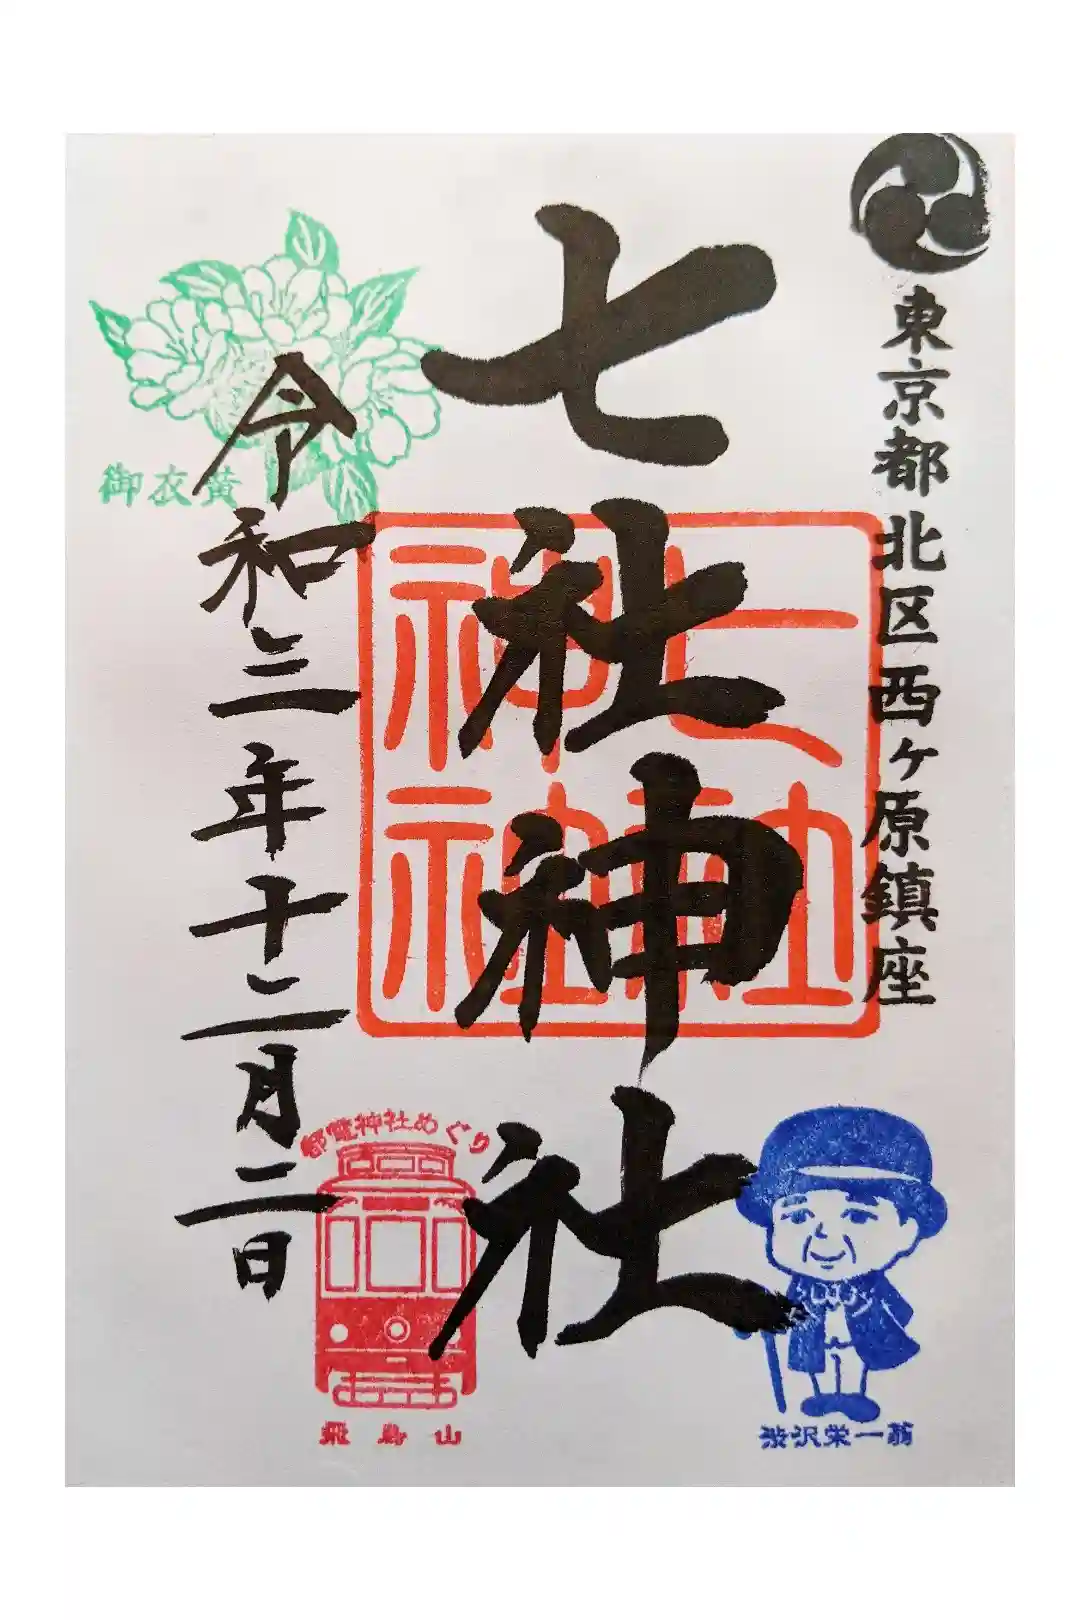 東京都北区西ヶ原鎮座
七社神社
七社
神社
令和三年十二月二日
御衣黄
都電神社めぐり
飛鳥山
渋沢栄一翁